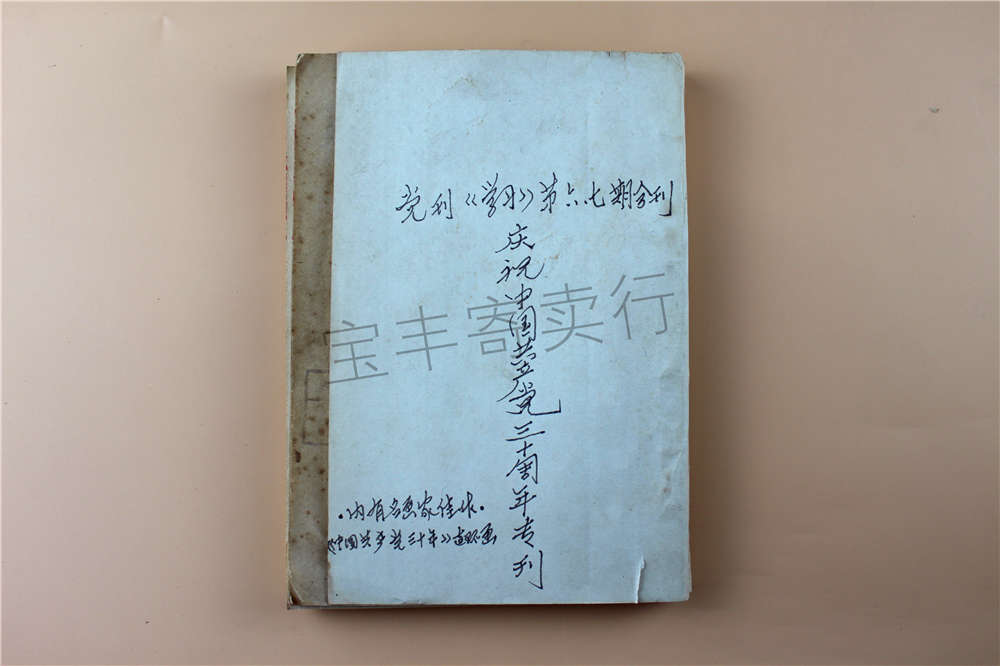 党刊《学习》第六.七期合刊
庆祝中国共产党三十周年专刊
·内有名画家佳作·
《中国共产党三十年》连环画
宝丰寄卖行